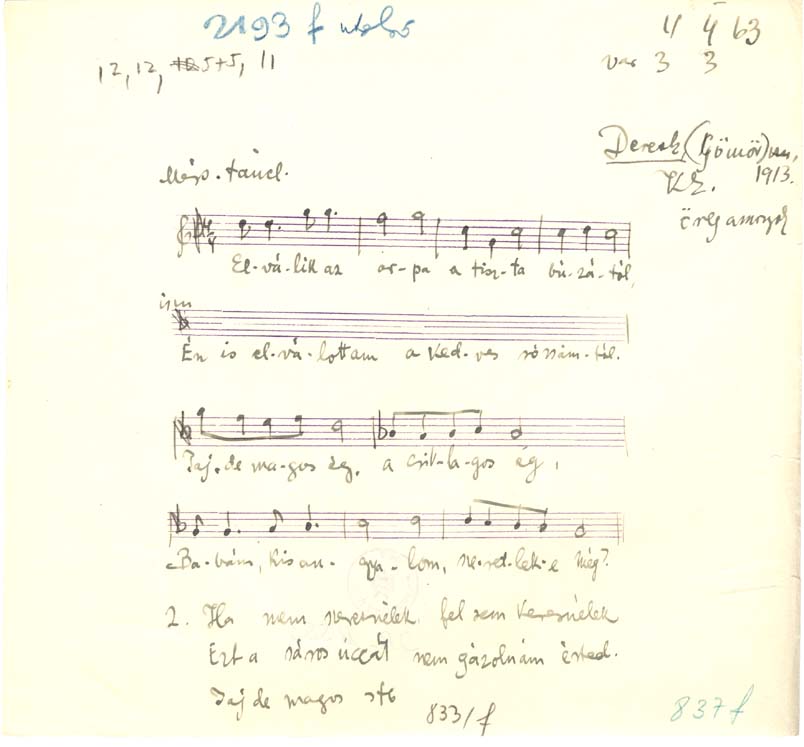 2193 f utolsó
4 4 63
12, 12, 5+5, 11
var 3 3
Deresk, (Gömör)
1913.
KZ.
öreg asszony
Mérs. táncl.
El-vá-lik az ár-pa a tisz-ta bú-zá-tól,
ism
Én is el-vá-lottam a ked-ves rózsám-tól.
Jaj, de ma-gos ég, a csil-la-gos ég,
Ba-bám, kis an-gya-lom, sze-ret-lek-e még?
2. Ha nem szeretnélek fel sem keresnélek
Ezt a sáros úccát nem gázolnám érted.
Jaj de magos stb
833/f
837 f